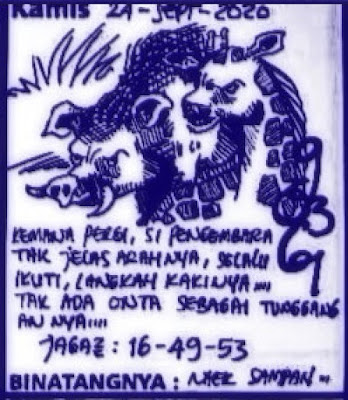 Kamis 24-Sept-2020
KEMANA PERGI, SI PENGEMBARA
TAK JELAS ARAHNYA, SELALU
IKUTI, LANGKAH KAKINYA....
TAK ADA ONTA SEBAGAI TUNGGANG
AN NYA....
JAGAZ : 16-49-53
BINATANGNYA : NAEK SAMPAN